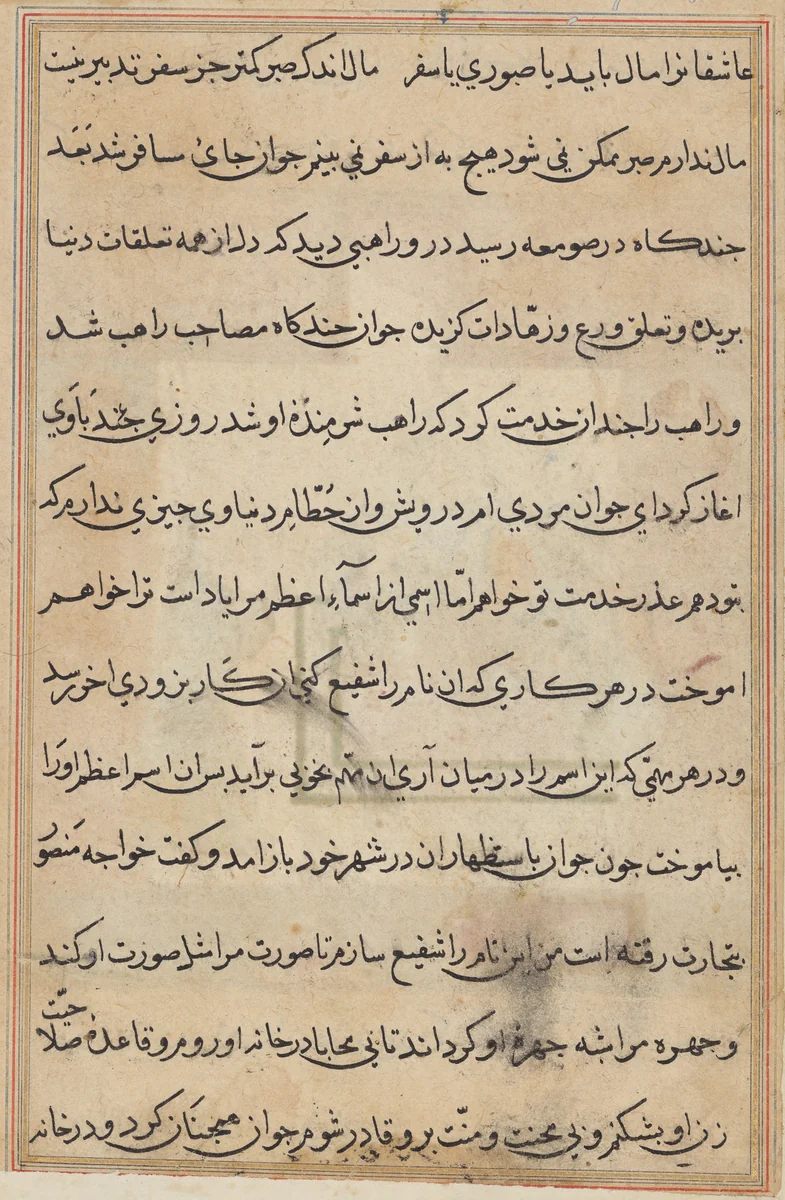 عاشقانرا مال بايد يا صبوري يا سفر مال اندك صبر كمتر جز سفر تدبير نيست
مال ندارم صبر ممكن ني شود هيج به از سفر ني بينم جوان جائ مسافر شد بَعَد
جندكاه در صومعه رسيد درو راهبي ديد كه دل از همه تعلقات دنيا
بريده و تعلق ورع و زهّادات كزيده جوان جندكاه مصاحب راهب شد
و راهب را جندان خدمت كرد كه راهب شرمِنِدَهٔ او شد روزي جَنْد باوَي
اغاز كرد اي جوان مردي ام درويش و از حُطّامِ دنياوي جيزي ندارم كه
بتو دهم عذر خدمت تو خواهم امّا اسمي از اسمآءِ اعظم مرا ياد است ترا خواهم
اموخت در هر كاري كه ان نام را شفيع كني ان كَار بزودي اخر رسد
و در هر مهمّي كه اين اسم را در ميان آري ان مهّم بخوبي برآيد بس ان اسم اعظم اورَا
بياموخت جون جوان باستظهار ان در شهر خود باز امد و كفت خواجه مَنصُور
بتجارت رفته است من اين نام را شفيع سازم تا صورت مرا مثل صورت او كند
و جهره مرا شبه جهرهٔ او كرداند تا بي محابا در خانه او روم و قاعدهٔ صلاحيّت
زن او بشكنم و بي محنت و منّت برو قادر شوم جوان همجنَان كرد و در خانه